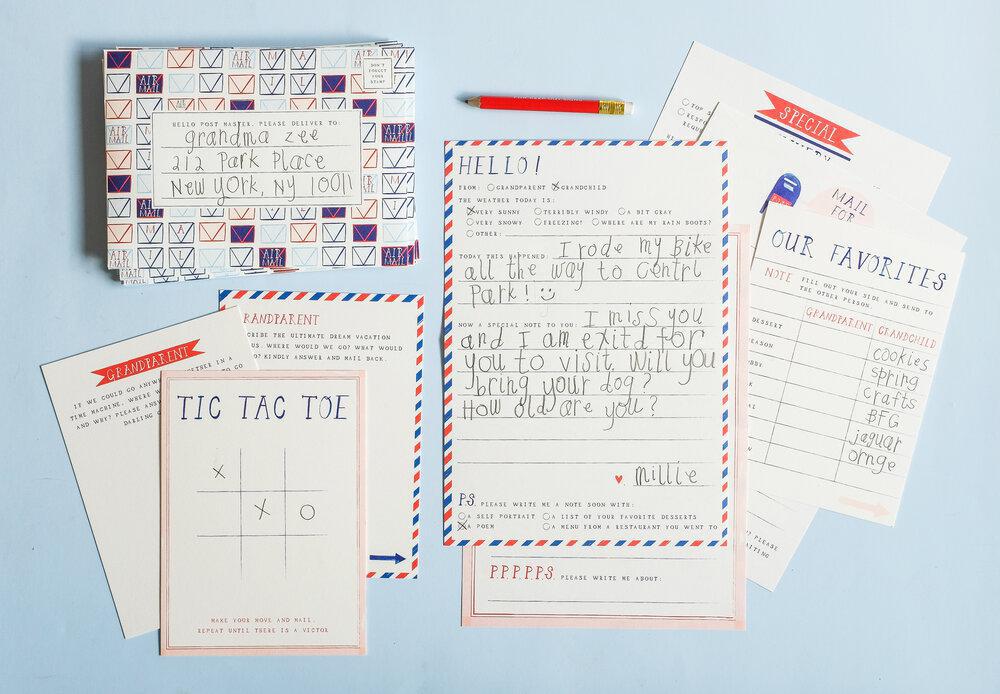 AIR MAIL
MAIL
DON'T
FORGET
YOUR
STAMP
HELLO POST MASTER, PLEASE DELIVER TO:
grandma zee
212 Park Place
New York, NY 10011
GRANDPARENT
IF WE COULD GO ANYW
TOGETHER IN A
TIME MACHINE, WHERE W
TO GO
AND WHY? PLEASE ANSW
DARLING G
RANDPARENT
RIBE THE ULTIMATE DREAM VACATION
US. WHERE WOULD WE GO? WHAT WOULD
O? KINDLY ANSWER AND MAIL BACK.
TIC TAC TOE
X
X O
MAKE YOUR MOVE AND MAIL.
REPEAT UNTIL THERE IS A VICTOR
HELLO!
FROM: GRANDPARENT GRANDCHILD
THE WEATHER TODAY IS:
VERY SUNNY TERRIBLY WINDY A BIT GRAY
VERY SNOWY FREEZING! WHERE ARE MY RAIN BOOTS?
OTHER:
TODAY THIS HAPPENED: I rode my Bike
all the way to Centrl
Park!
NOW A SPECIAL NOTE TO YOU: I miss you
and I am exitd for
you to visit. Will you
bring your dog?
How old are you?
millie
P.S. PLEASE WRITE ME A NOTE SOON WITH:
A SELF PORTRAIT A LIST OF YOUR FAVORITE DESSERTS
A POEM A MENU FROM A RESTAURANT YOU WENT TO
P.P.P.P.P.S. PLEASE WRITE ME ABOUT:
TOP
RESPO
REQU
SPECIAL
MAIL
FOR
OUR FAVORITES
NOTE FILL OUT YOUR SIDE AND SEND TO
THE OTHER PERSON.
GRANDPARENT GRANDCHILD
DESSERT cookies
EASON spring
BBY crafts
BFG
jaguar
ornge
PLEASE
AITING